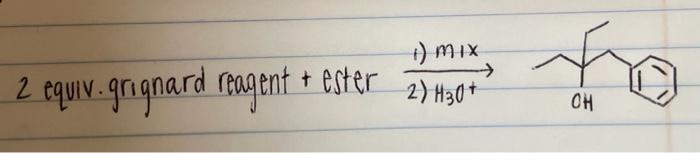 2 equiv. grignard reagent + ester
1) mix
2) H3O+
OH